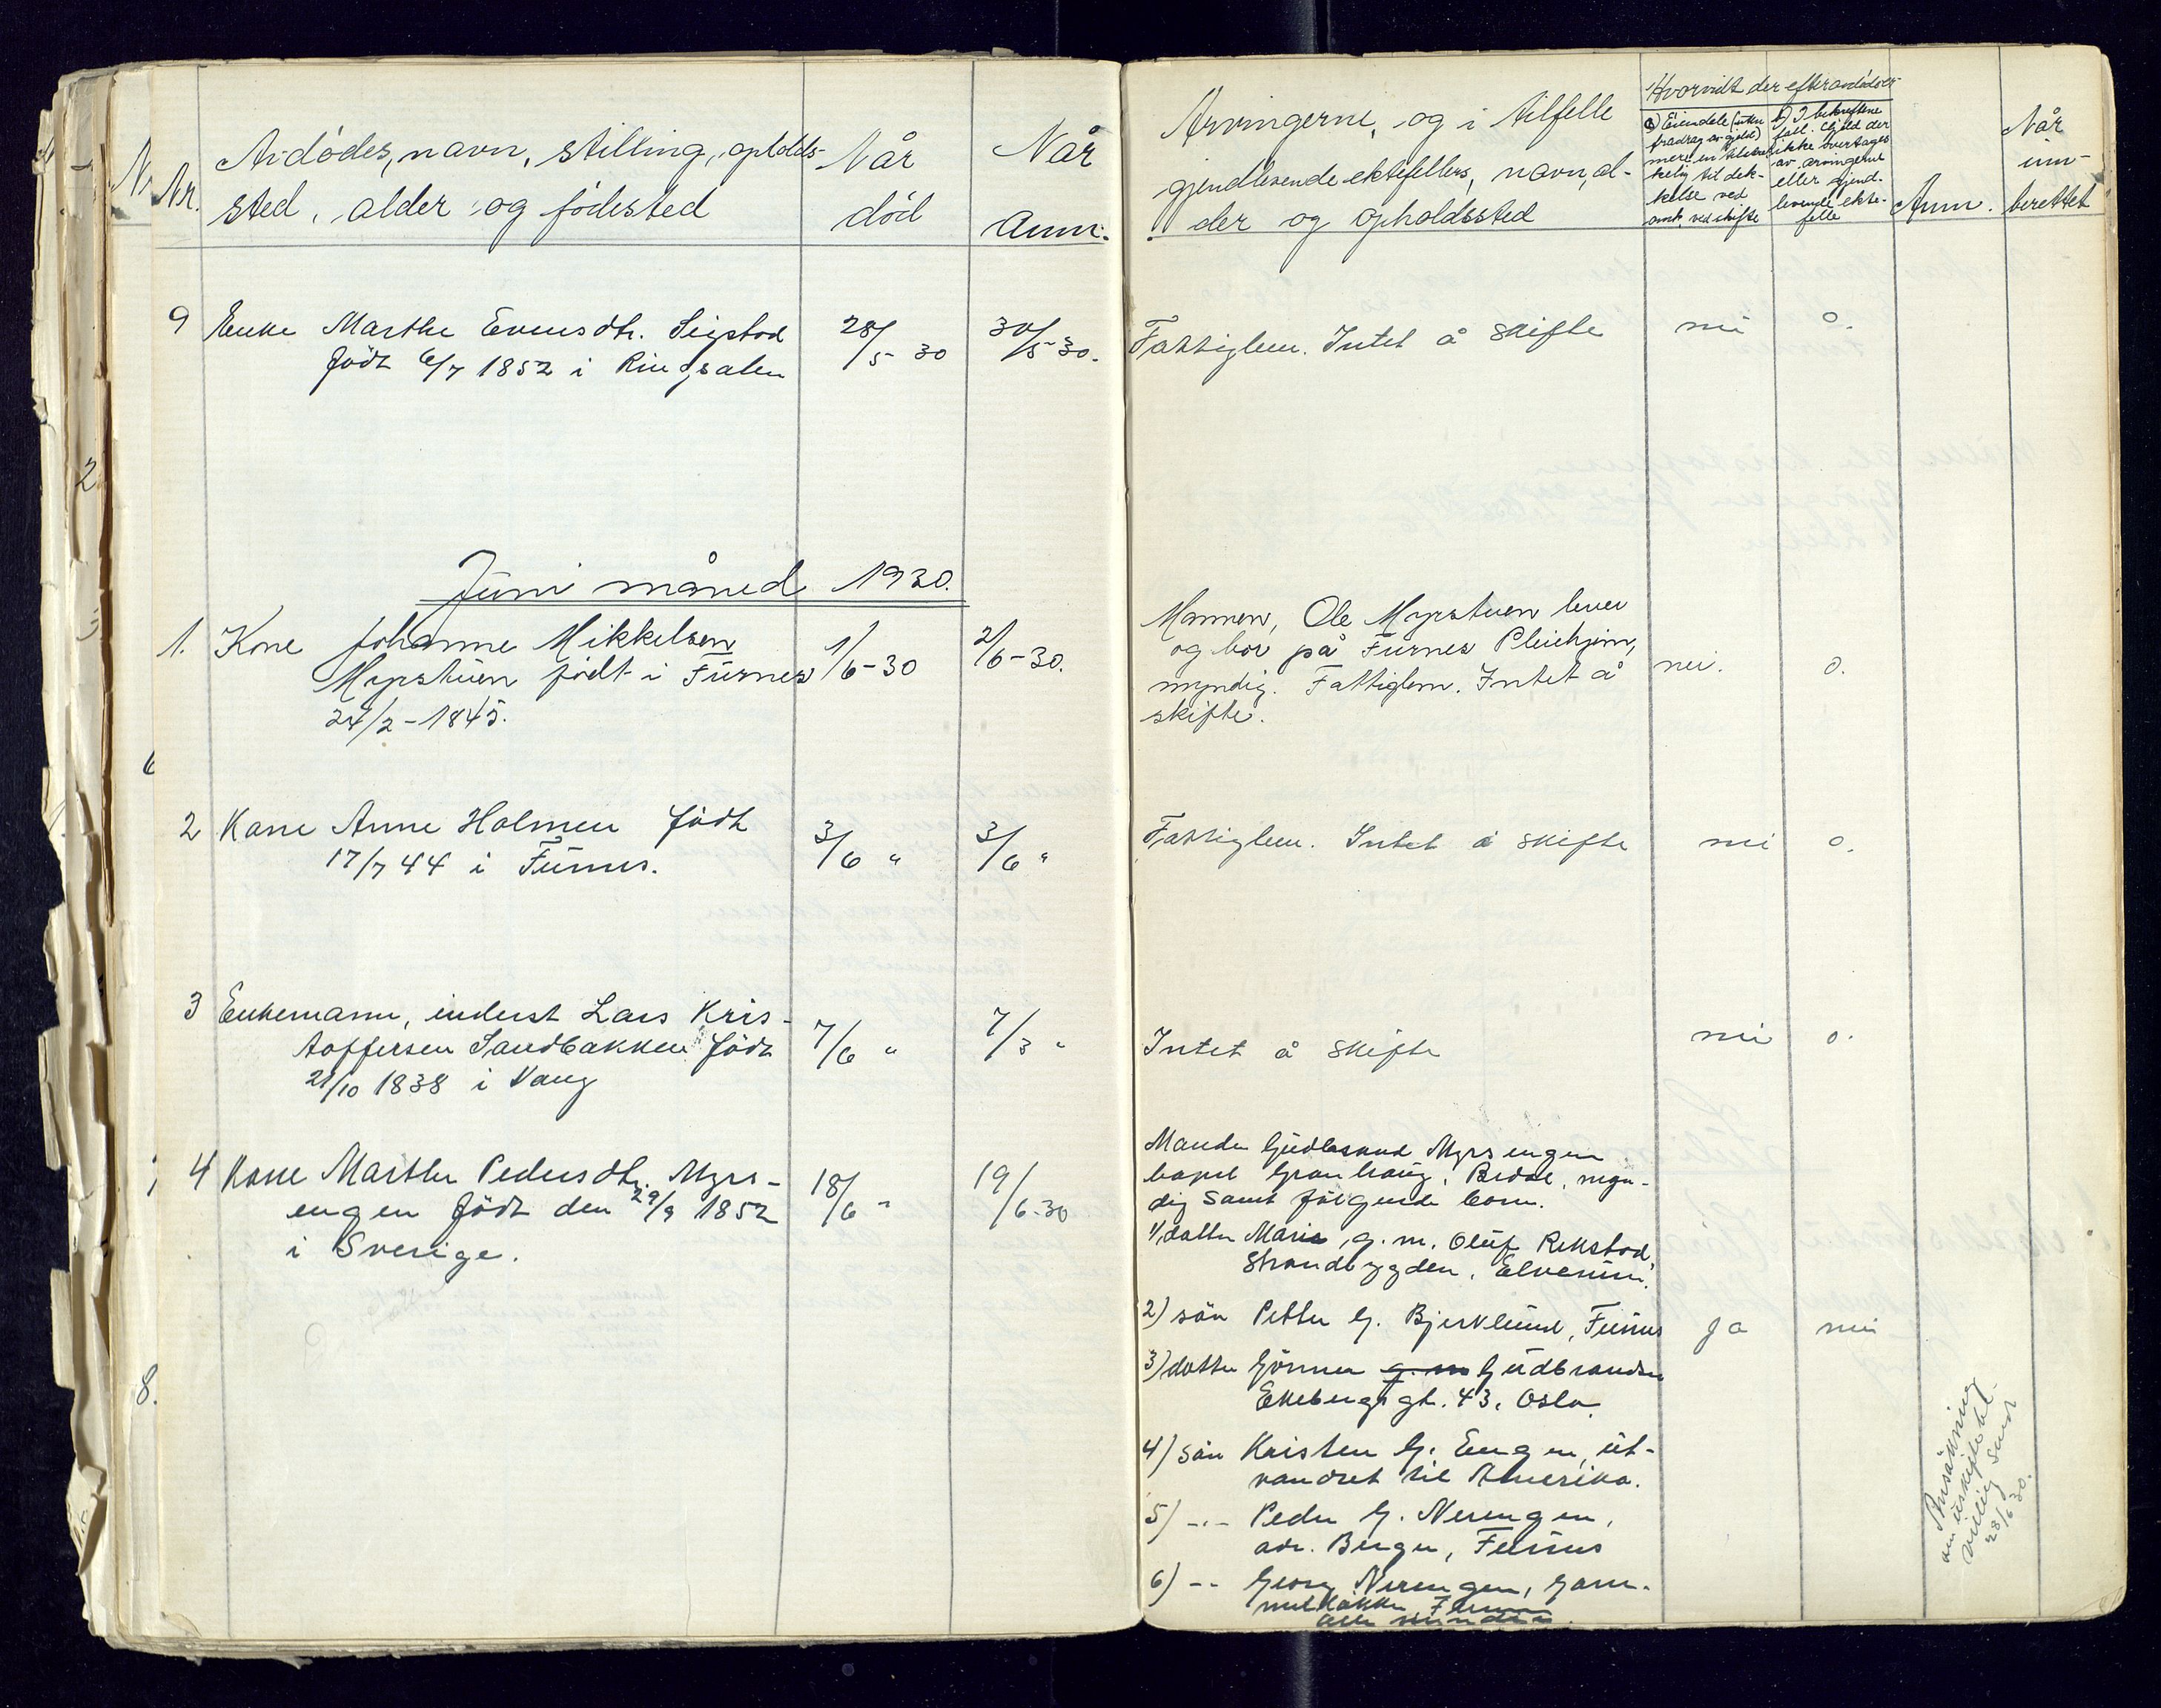 Nr.
Avdødes, navn, stilling, opholds-
sted, alder og fødested
Når
død
Når
anm.
Arvingerne, og i tilfelle
gjenlevende ektefelles, navn, al-
der og opholdssted
Hvorvidt der efter avdøde er
a) Eiendele (uten
fradrag av gjeld)
mere en tilstrek-
kelig til dek-
kelse ved
omk. ved skifte
b) I bekreftene
fall. Gjeld der
ikke overtages
av arvingerne
eller gjend-
levende ekte-
felle
Anm.
Når
inn-
berettet
9 Enke Marthe Evensdtr. Sigstad
født 6/7 1852 i Ringsaker
28/5 30
30/5-30.
Fattiglem. Intet å skifte
nei
0.
Juni måned 1930.
1. Kone Johanne Mikkelsen
Myrstuen født i Furnes
24/2-1845.
1/6-30
2/6-30.
Mannen, Ole Myrstuen lever
og bor på Furnes Pleiehjem,
myndig. Fattiglem. Intet å
skifte.
nei.
0.
2 Kone Anne Holmen født
17/7 44 i Furnes.
3/6 "
3/6 "
Fattiglem. Intet å skifte
nei
0.
3 Enkemann, inderst Lars Kris-
toffersen Sandbakken født
21/10 1838 i Vang
7/6 "
7/3 "
Intet å skifte
nei
0.
4 Kone Marthe Pedersdtr. Myrs-
engen født den 29/9 1852
i Sverige.
18/6 "
19/6-30
Manden Gudbrand Myrsengen
Granhaug, Brdal, myn-
dig samt følgende born.
1) datter Marie, g. m. Oluf Rekstad
Strandbygden, Elverum.
2) søn Petter G. Bjerklund, Furnes
Ja
nei
3) datter Gjønner g. m Gudbrandsen
Ekebergsgt. 43, Oslo
4) søn Kristen G. Engen, ut-
vandret til Amerika.
5) -"- Peder G. Nerengen,
adr. Berger, Furnes
6) -"- Georg Nerengen, Gam-
melløkken Furnes
alle myndige.
Ansøkning
om uskiftebe-
villing sendt
28/6 30.